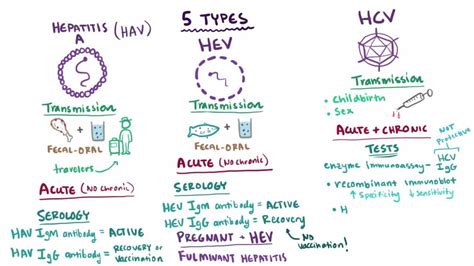 5 TYPES
HEPATITIS A (HAV)
Transmission
FECAL-ORAL
travelers
ACUTE (No chronic)
SEROLOGY
HAV IgM antibody = ACTIVE
HAV IgG antibody = RECOVERY or VACCINATION
HEV
Transmission
FECAL-ORAL
ACUTE (No chronic)
SEROLOGY
HEV IgM antibody = ACTIVE
HEV IgG antibody = Recovery
PREGNANT + HEV
NO vaccination!
FULMINANT HEPATITIS
HCV
Transmission
• Childbirth
• Sex
ACUTE + CHRONIC
NOT Protective
TESTS
enzyme immunoassay - HCV IgG
• recombinant immunoblot
↑ specificity ↓ sensitivity
• H